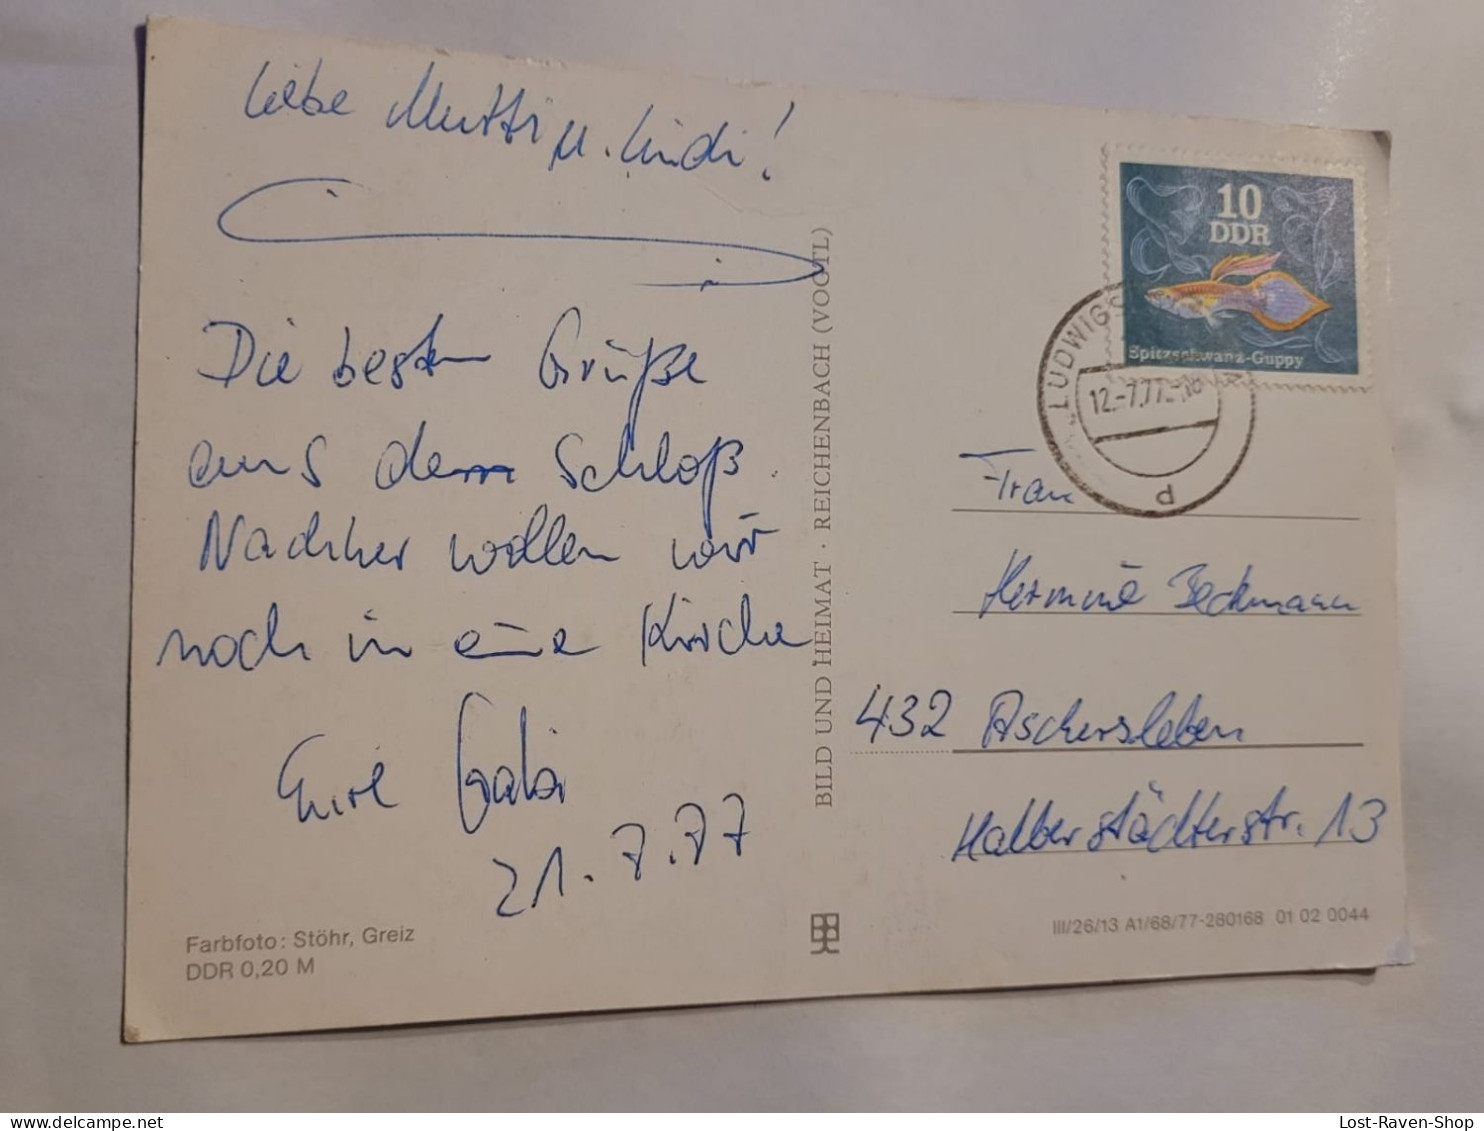 Liebe Mutti u. Lindi!
Die besten Grüße
aus dem Schloß.
Nachher wollen wir
noch in eine Kirche
Eure Gabi
21.7.77
Farbfoto: Stöhr, Greiz
DDR 0,20 M
BILD UND HEIMAT · REICHENBACH (VOGTL)
10
DDR
Spitzschwanz-Guppy
LUDWIGS
12.-7.77
d
Frau
Hermine Beckmann
432 Aschersleben
Halberstädterstr. 13
III/26/13 A1/68/77-280168 01 02 0044
Lost-Raven-Shop